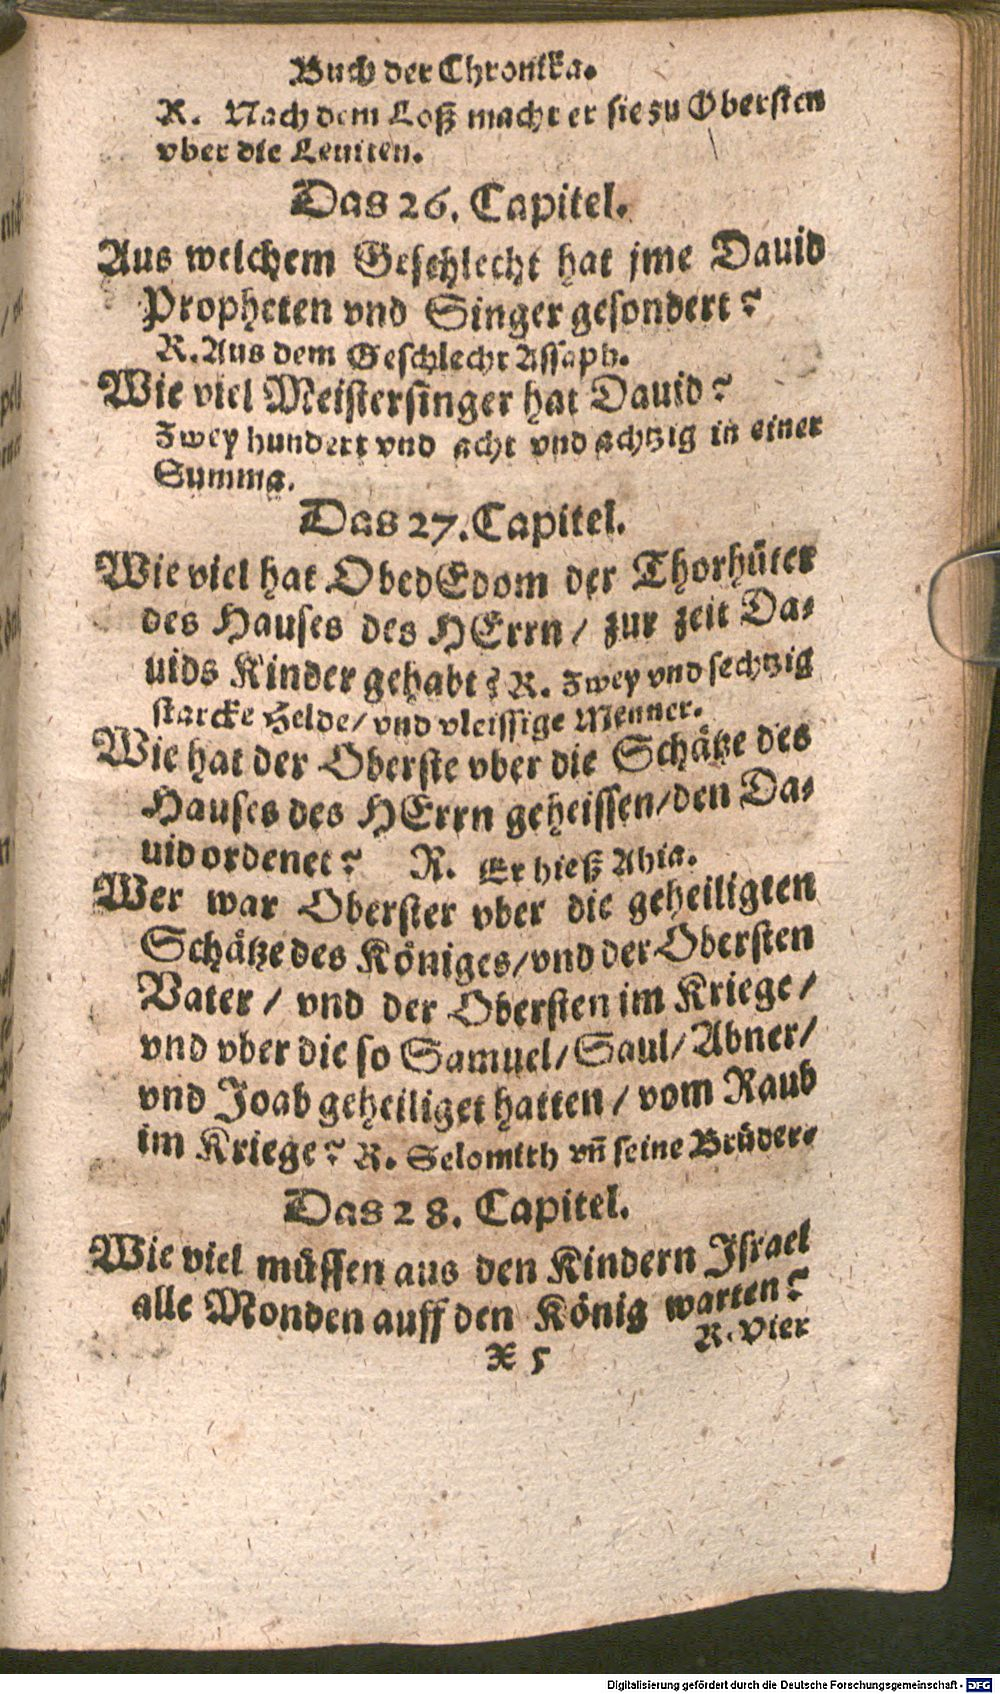 Buch der Chronika.
R. Nach dem Loß macht er sie zu Obersten
vber die Leuiten.
Das 26. Capitel.
Aus welchem Geschlecht hat jme Dauid
Propheten vnd Singer gesondert?
R. Aus dem Geschlecht Assaph.
Wie viel Meistersinger hat Dauid?
Zwey hundert vnd acht vnd achtzig in einer
Summa.
Das 27. Capitel.
Wie viel hat ObedEdom der Thorhüter
des Hauses des HErrn / zur zeit Da-
uids Kinder gehabt? R. Zwey vnd sechtzig
starcke Helde / vnd vleissige Menner.
Wie hat der Oberste vber die Schätze des
Hauses des HErrn geheissen / den Da-
uid ordenet? R. Er hieß Ahia.
Wer war Oberster vber die geheiligten
Schätze des Königes / vnd der Obersten
Vater / vnd der Obersten im Kriege /
vnd vber die so Samuel / Saul / Abner /
vnd Joab geheiliget hatten / vom Raub
im Kriege? R. Selomith vn̄ seine Brüder.
Das 28. Capitel.
Wie viel müssen aus den Kindern Israel
alle Monden auff den König warten?
R. Vier
X 5
Digitalisierung gefördert durch die Deutsche Forschungsgemeinschaft - DFG